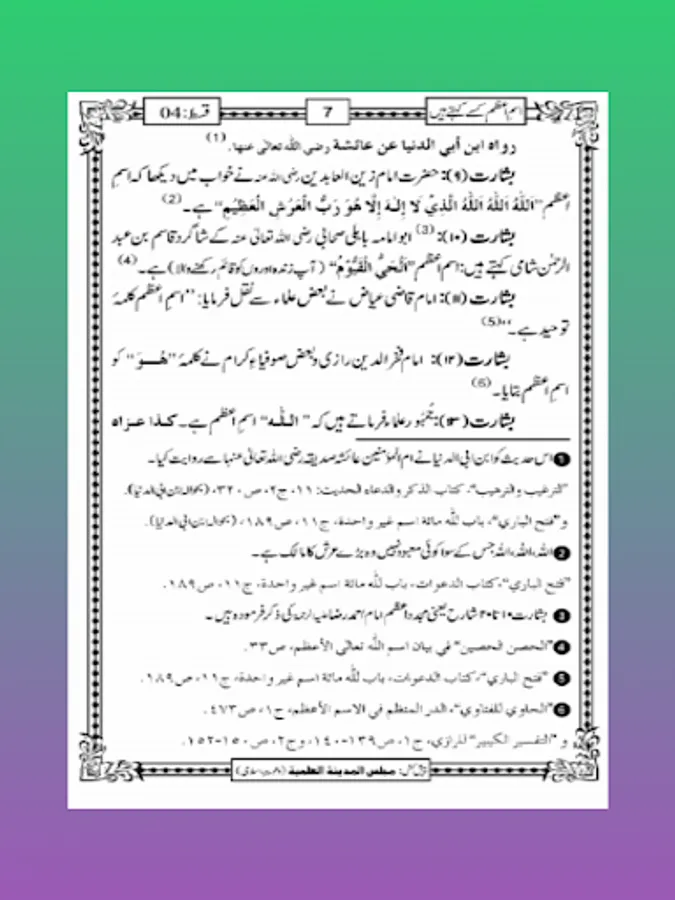 اسمِ اعظم کسے کہتے ہیں
7
قسط:04
رواه ابن أبي الدنيا عن عائشة رضي الله تعالى عنها. (1)
بشارت (۹): حضرت امام زین العابدین رضی اللہ عنہ نے خواب میں دیکھا کہ اسمِ
اَعظم ”اَللّٰهُ اَللّٰهُ اَللّٰهُ الَّذِيْ لَا إِلٰهَ إِلَّا هُوَ رَبُّ الْعَرْشِ الْعَظِيْمِ“ ہے۔ (2)
بشارت (۱۰): (3) ابو امامہ باہلی صحابی رضی اللہ تعالی عنہ کے شاگرد قاسم بن عبد
الرحمٰن شامی کہتے ہیں: اسمِ اعظم ”اَلْحَيُّ الْقَيُّوْمُ“ (آپ زندہ اوروں کو قائم رکھنے والا) ہے۔ (4)
بشارت (۱۱): امام قاضی عیاض نے بعض علماء سے نقل فرمایا: ”اسمِ اعظم کلمۂ
توحید ہے۔“ (5)
بشارت (۱۲): امام فخر الدین رازی و بعض صوفیاءِ کرام نے کلمۂ ”هُوَ“ کو
اسمِ اعظم بتایا۔ (6)
بشارت (۱۳): جُمہور علماء فرماتے ہیں کہ ”اللّٰه“ اسمِ اعظم ہے۔ كذا عزاه
1 اس حدیث کو ابن ابی الدنیا نے ام المؤمنین عائشہ صدیقہ رضی اللہ تعالی عنہا سے روایت کیا۔
”الترغيب والترهيب“، كتاب الذكر والدعاء، الحديث: ۱۱، ج۲، ص۳۲۰، (بحوالہ ابن ابی الدنیا).
و”فتح الباري“، باب لله مائة اسم غير واحدة، ج۱۱، ص۱۸۹، (بحوالہ ابن ابی الدنیا).
2 اللہ، اللہ، اللہ جس کے سوا کوئی معبود نہیں وہ بڑے عرش کا مالک ہے۔
”فتح الباري“، كتاب الدعوات، باب لله مائة اسم غير واحدة، ج۱۱، ص۱۸۹.
3 بشارت ۱۰ تا ۲۰ شارح یعنی مجدد اعظم امام احمد رضا علیہ الرحمہ کی ذکر فرمودہ ہیں۔
4 ”الحصن الحصين“ في بيان اسم الله تعالى الأعظم، ص۳۳.
5 ”فتح الباري“، كتاب الدعوات، باب لله مائة اسم غير واحدة، ج۱۱، ص۱۸۹.
6 ”الحاوي للفتاوي“، الدر المنظم في الاسم الأعظم، ج۱، ص۴۷۳.
و ”التفسير الكبير“ للرازي، ج۱، ص۱۳۹-۱۴۰، وج۲، ص۱۵۰-۱۵۲.
پیش کش: مجلس المدينة العلمية (دعوت اسلامی)